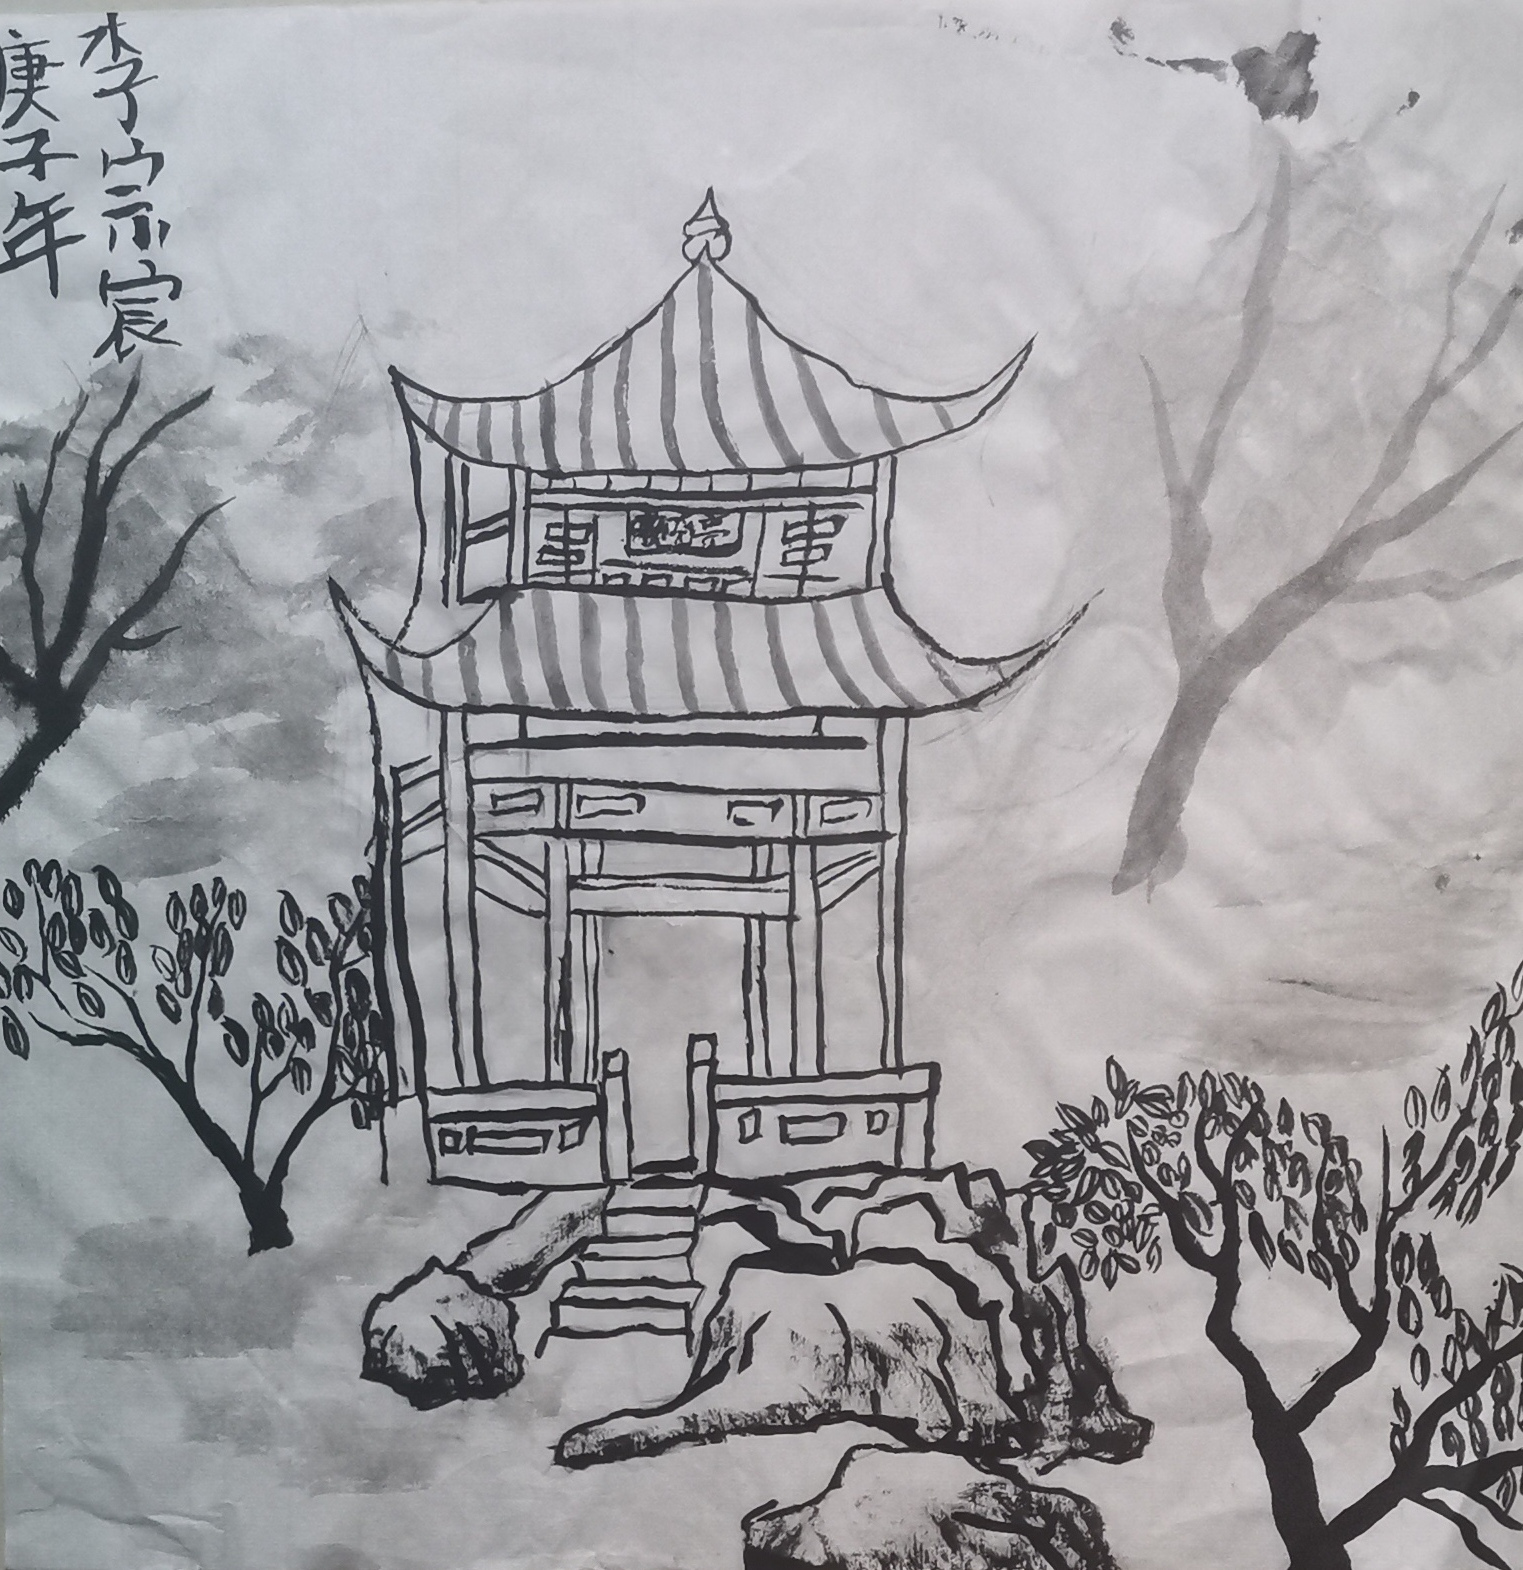 李宗宸
庚子年